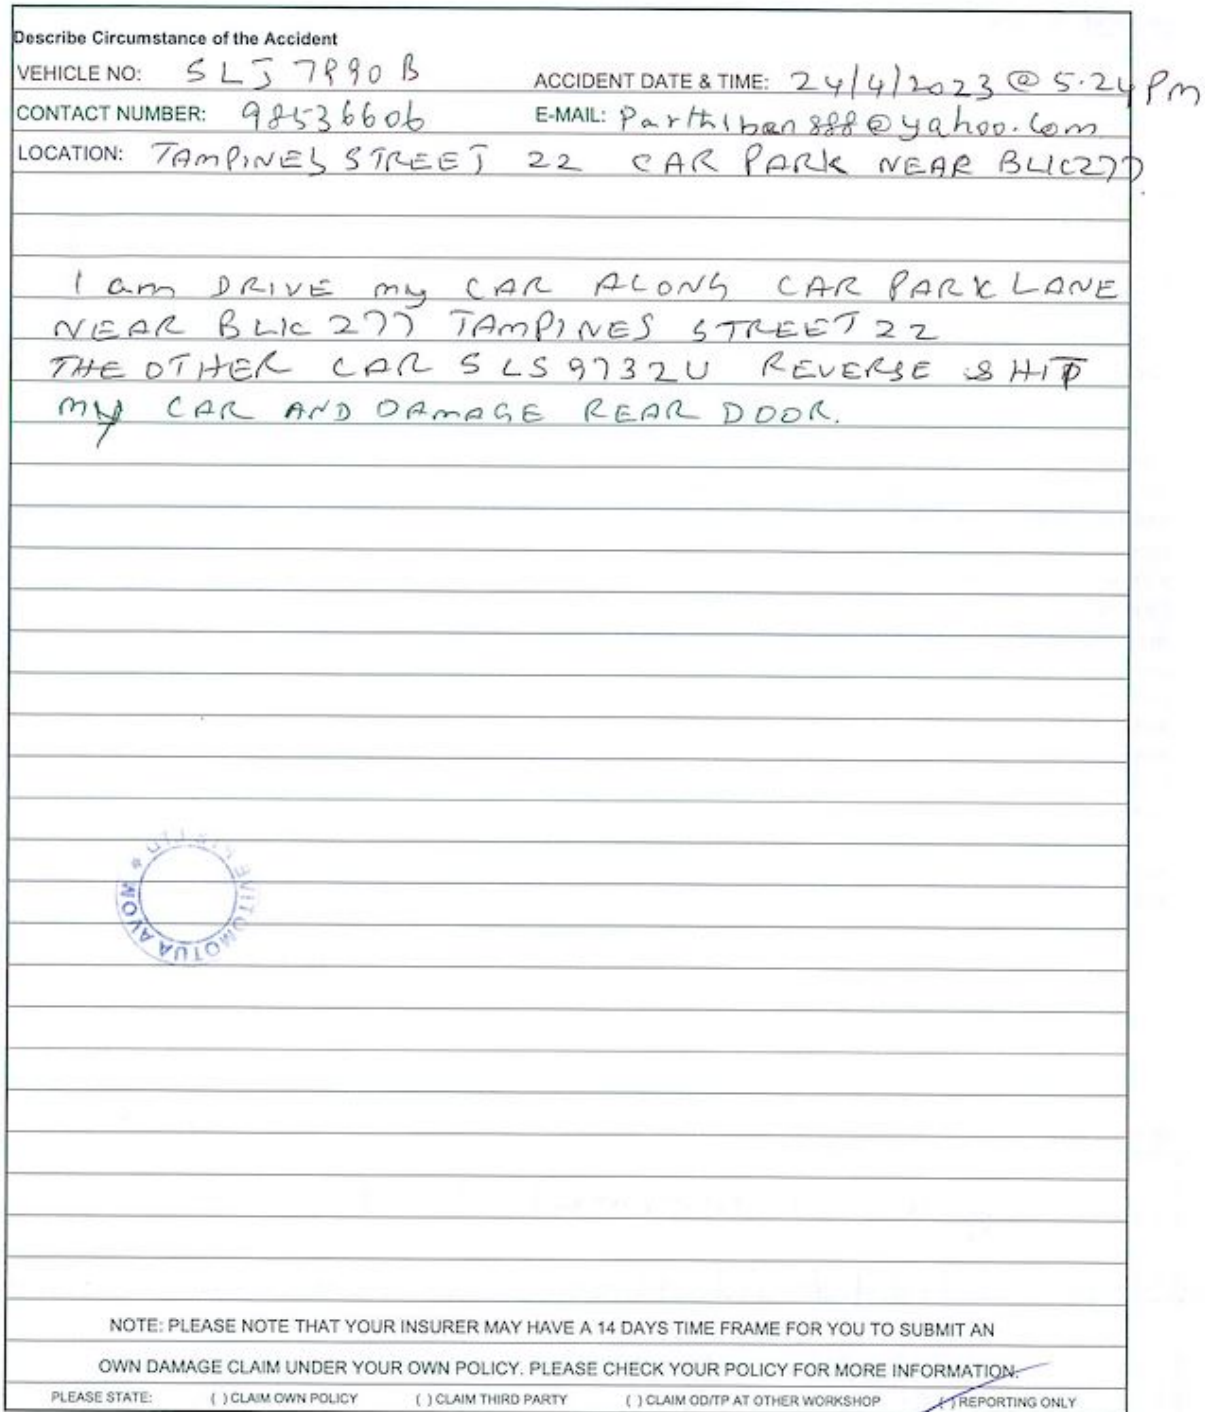 Describe Circumstance of the Accident
VEHICLE NO: SLJ 7890 B ACCIDENT DATE & TIME: 24/4/2023 @ 5.24 Pm
CONTACT NUMBER: 98536606 E-MAIL: Parthiban888@yahoo.com
LOCATION: TAMPINES STREET 22 CAR PARK NEAR BLK277
I am DRIVE my CAR ALONG CAR PARK LANE
NEAR BLK 277 TAMPINES STREET 22
THE OTHER CAR SLS9732U REVERSE & HIT
MY CAR AND DAMAGE REAR DOOR.
WOVA AUTOMOTIVE PTE LTD *
NOTE: PLEASE NOTE THAT YOUR INSURER MAY HAVE A 14 DAYS TIME FRAME FOR YOU TO SUBMIT AN
OWN DAMAGE CLAIM UNDER YOUR OWN POLICY. PLEASE CHECK YOUR POLICY FOR MORE INFORMATION.
PLEASE STATE: ( ) CLAIM OWN POLICY ( ) CLAIM THIRD PARTY ( ) CLAIM OD/TP AT OTHER WORKSHOP (/) REPORTING ONLY